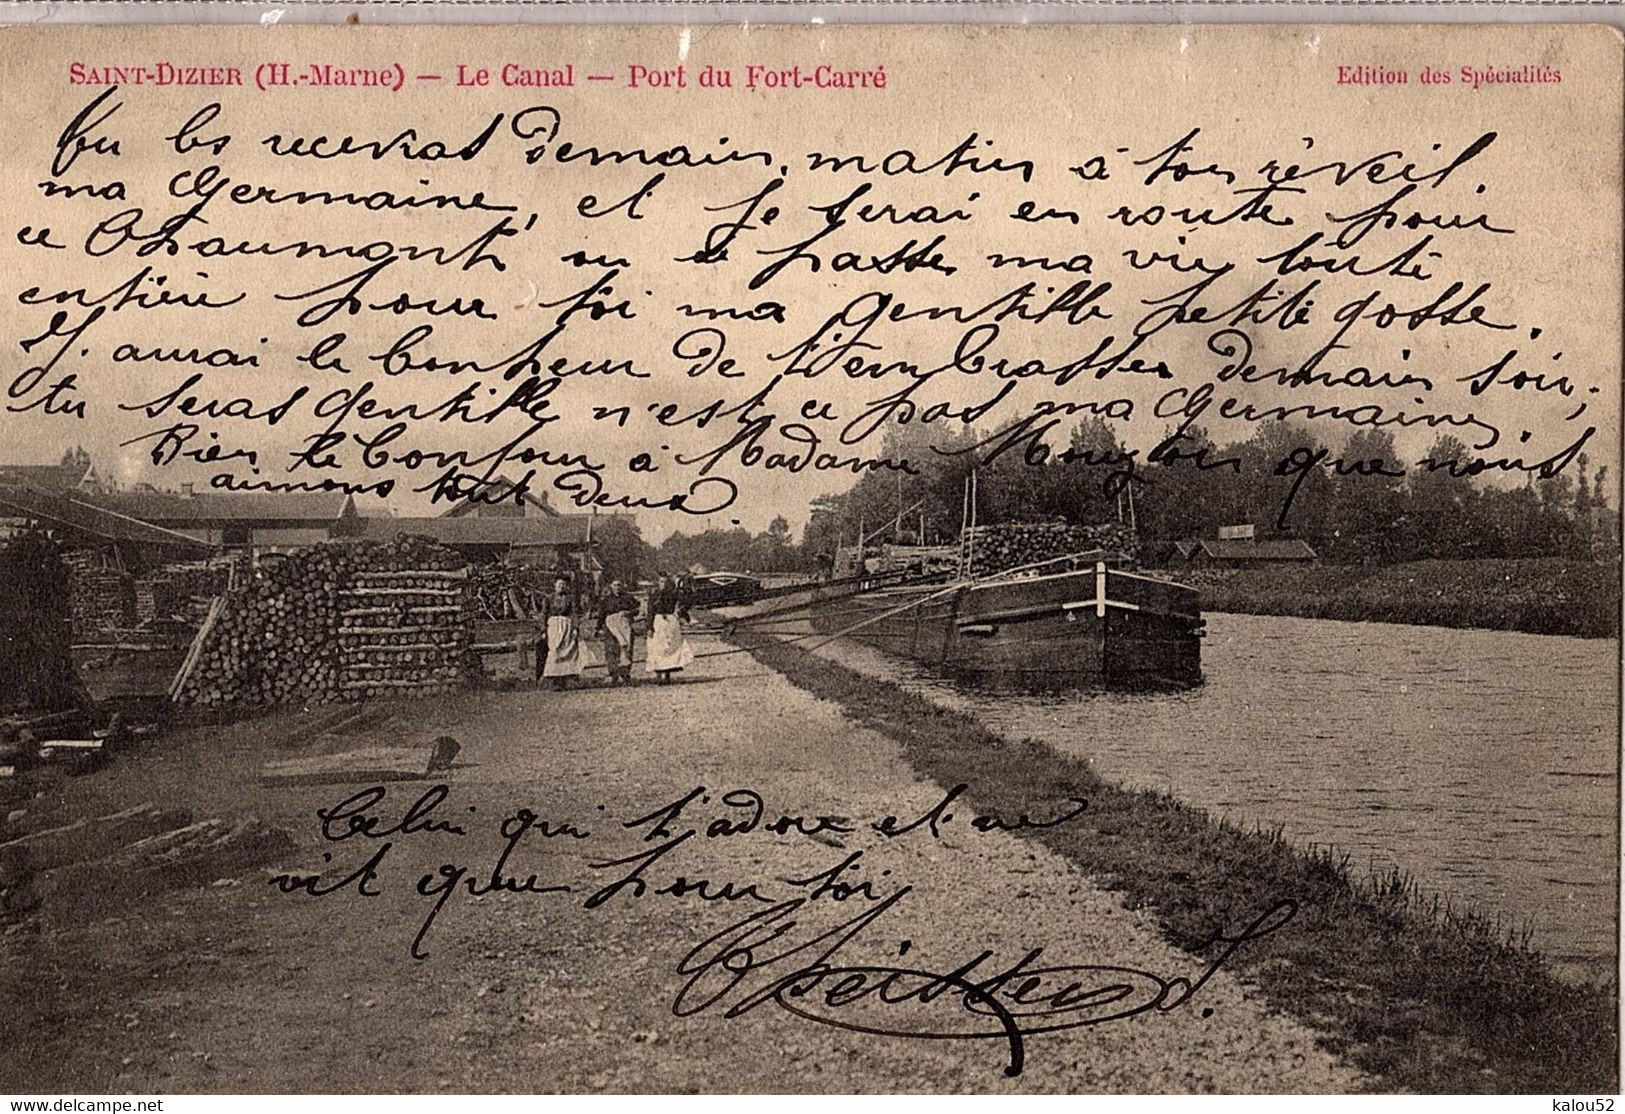 SAINT-DIZIER (H.-Marne) — Le Canal — Port du Fort-Carré
Edition des Spécialités
Tu les recevras demain, matin à ton réveil.
ma Germaine, et je serai en route pour
ce Chaumont ou se passe ma vie toute
entière pour toi ma gentille petite gosse.
J'aurai le bonheur de t'embrasser demain soir;
tu seras gentille n'est ce pas ma Germaine
Bien le bonjour à Madame que nous
aimons tout deux.
Celui qui t'adore et ne
vit que pour toi
kalou52